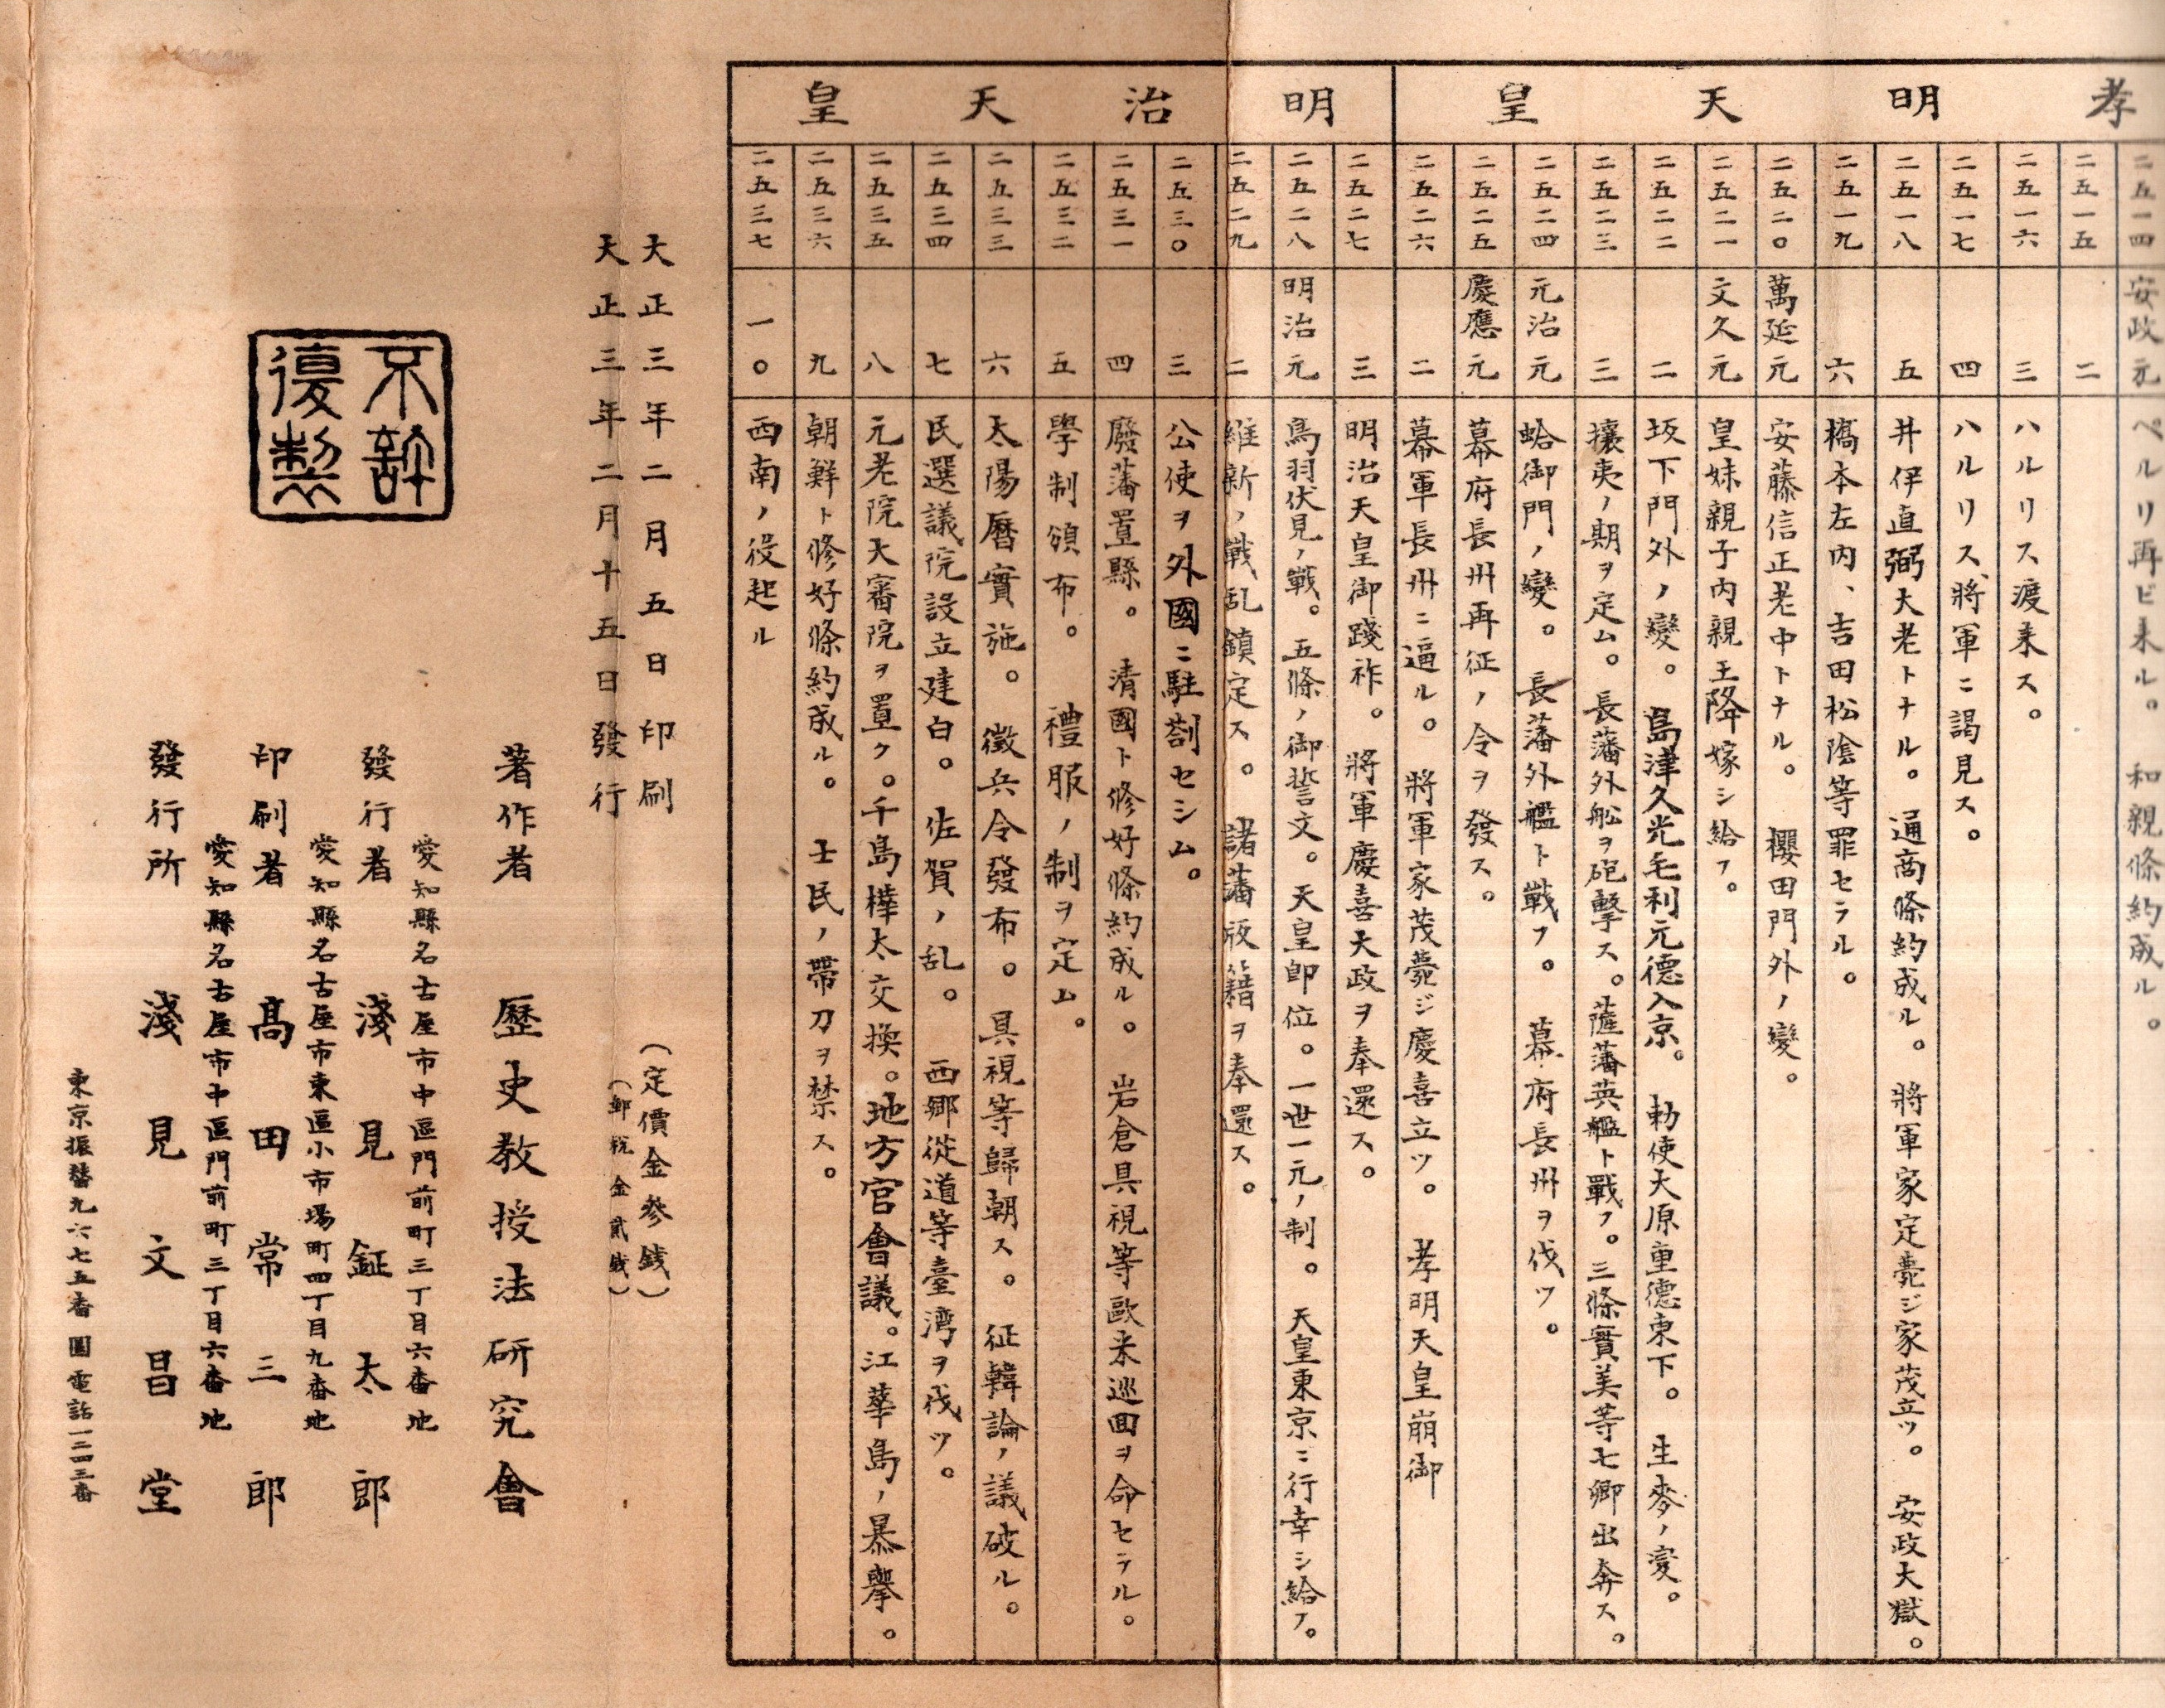 孝明天皇
二五一四 安政元 ペルリ再ビ来ル。和親條約成ル。
二五一五 二
二五一六 三 ハルリス渡来ス。
二五一七 四 ハルリス、將軍ニ謁見ス。
二五一八 五 井伊直弼大老トナル。通商條約成ル。將軍家定薨ジ家茂立ツ。安政大獄。
二五一九 六 橋本左内、吉田松陰等罪セラル。
二五二〇 萬延元 安藤信正老中トナル。櫻田門外ノ變。
二五二一 文久元 皇妹親子内親王降嫁シ給フ。
二五二二 二 坂下門外ノ變。島津久光毛利元德入京。勅使大原重德東下。生麥ノ変。
二五二三 三 攘夷ノ期ヲ定ム。長藩外船ヲ砲擊ス。薩藩英艦ト戰フ。三條實美等七卿出奔ス。
二五二四 元治元 蛤御門ノ變。長藩外艦ト戦フ。幕府長州ヲ伐ツ。
二五二五 慶應元 幕府長州再征ノ令ヲ發ス。
二五二六 二 幕軍長州ニ逼ル。將軍家茂薨ジ慶喜立ツ。孝明天皇崩御
明治天皇
二五二七 三 明治天皇御踐祚。將軍慶喜大政ヲ奉還ス。
二五二八 明治元 鳥羽伏見ノ戰。五條ノ御誓文。天皇即位。一世一元ノ制。天皇東京ニ行幸シ給フ。
二五二九 二 維新ノ戰乱鎮定ス。諸藩版籍ヲ奉還ス。
二五三〇 三 公使ヲ外國ニ駐劄セシム。
二五三一 四 廢藩置縣。清國ト修好條約成ル。岩倉具視等歐米巡回ヲ命セラル。
二五三二 五 學制頒布。禮服ノ制ヲ定ム。
二五三三 六 太陽曆實施。徴兵令發布。具視等歸朝ス。征韓論ノ議破ル。
二五三四 七 民選議院設立建白。佐賀ノ乱。西郷從道等臺湾ヲ伐ツ。
二五三五 八 元老院大審院ヲ置ク。千島樺太交換。地方官會議。江華島ノ暴擧。
二五三六 九 朝鮮ト修好條約成ル。士民ノ帶刀ヲ禁ス。
二五三七 一〇 西南ノ役起ル
大正三年二月五日印刷
大正三年二月十五日發行
(定價金參銭)
(郵税金貳銭)
著作者 歷史教授法研究會
愛知縣名古屋市中區門前町三丁目六番地
發行者 淺見鉦太郎
愛知縣名古屋市東區小市場町四丁目九番地
印刷者 髙田常三郎
愛知縣名古屋市中區門前町三丁目六番地
發行所 淺見文昌堂
東京振替九六七五番 電話一二四三番
不許
復製